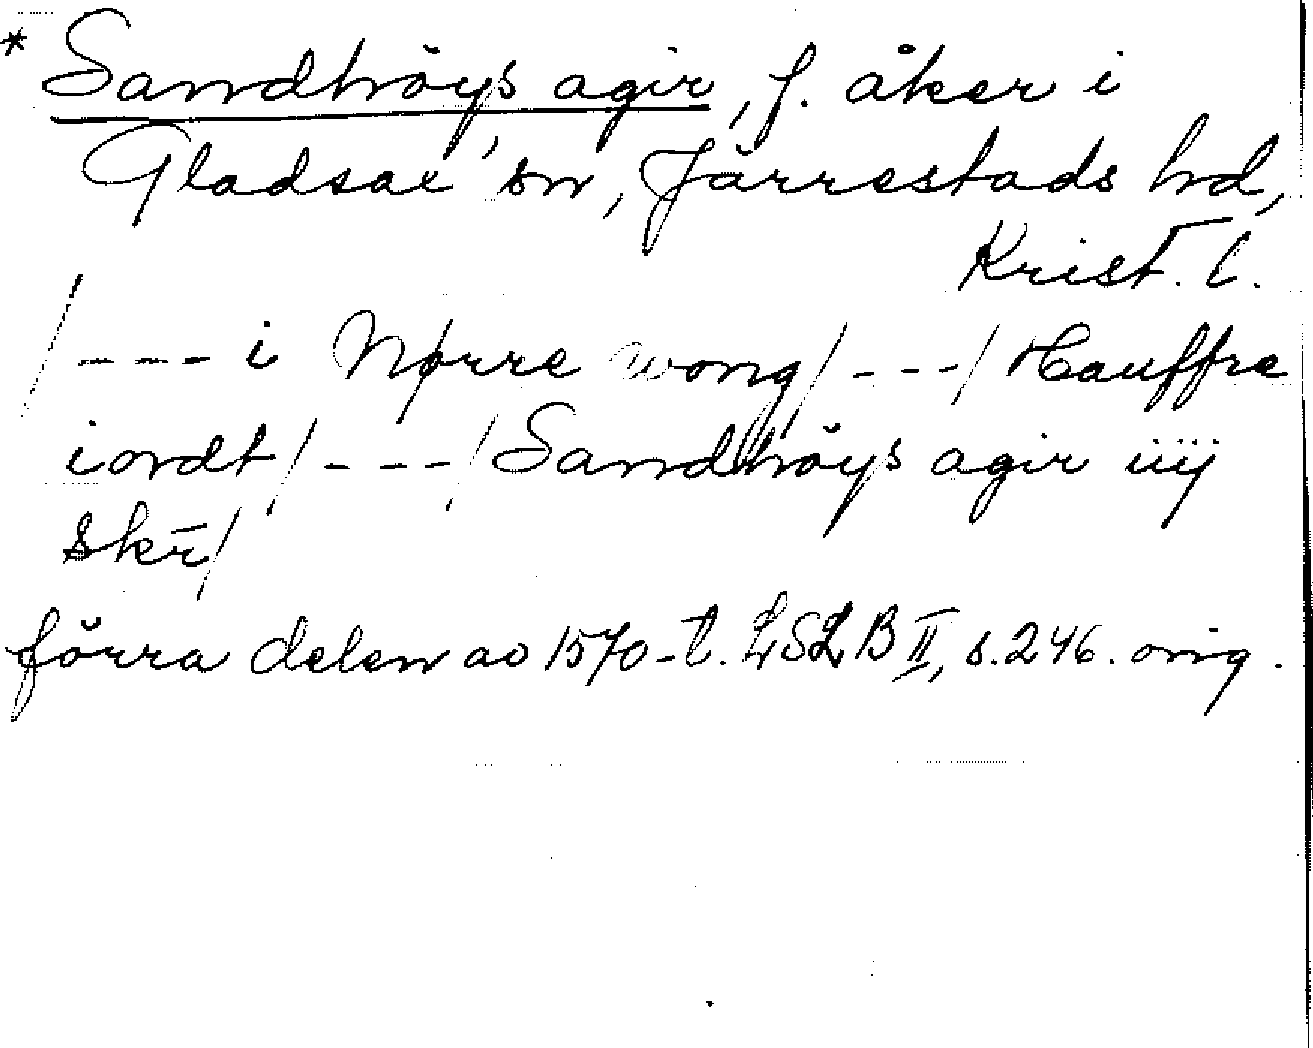 * Sandhöys agir, f. åker i
Gladsax sn, Järrestads hd,
Krist. l.
/--- i Nørre wong/---/Hauffre
iordt/---/Sandhöys agir iiij
skr̄/
förra delen av 1570-t. LSLB II, s. 246. orig.